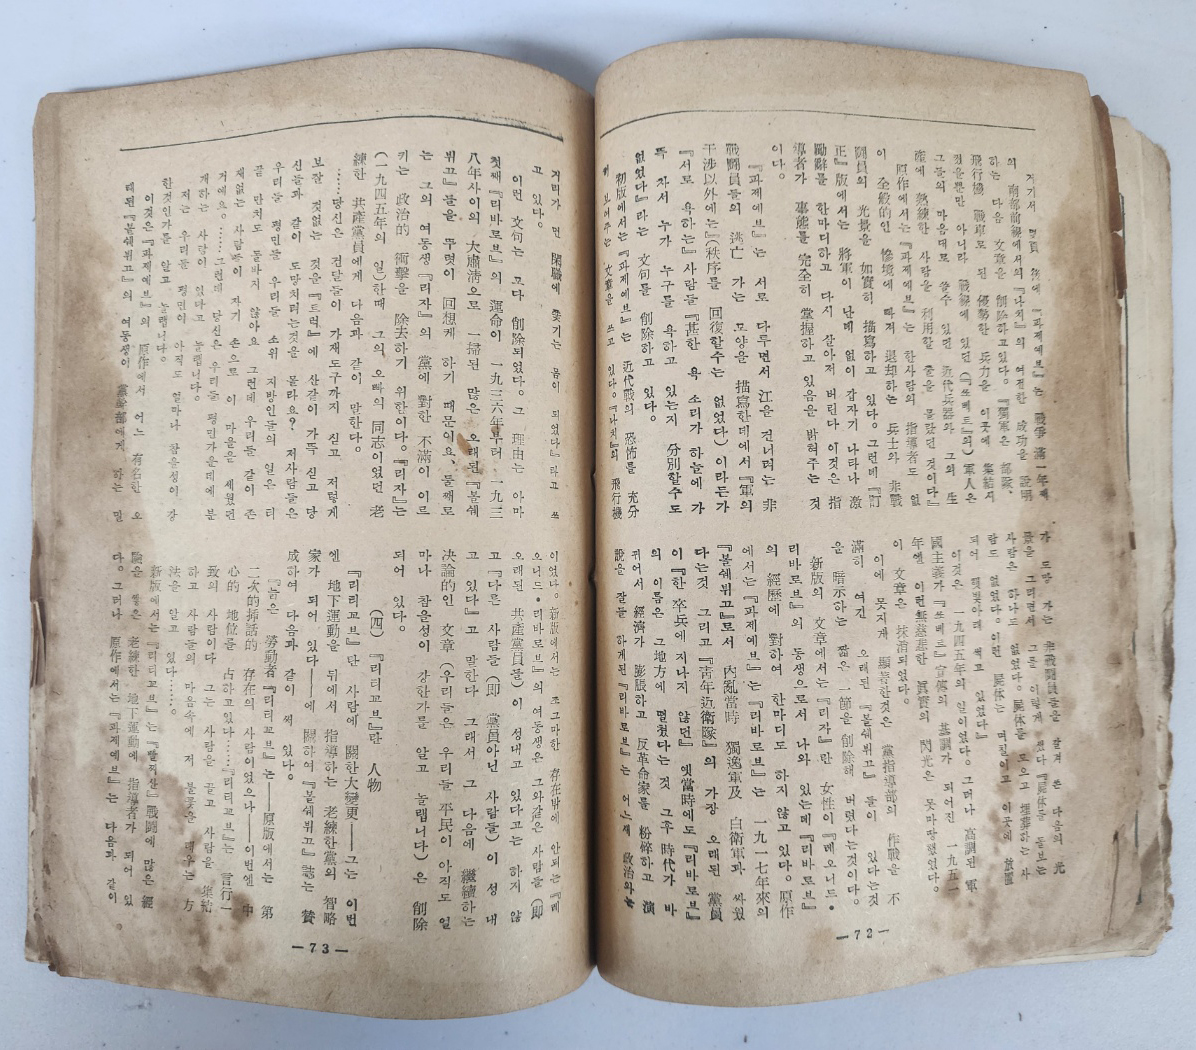 여기서 몇頁 後에 『파제예브』는 戰爭 滿一年째
의 南部前線에서의 『나치』의 여전한 成功을 說明
하는 다음 文章을 削除하고있다. 『獨軍은 部隊、
飛行機 戰車로 된 優勢한 兵力을 이곳에 集結시
켰을뿐만 아니라 戰線에 있던 (『쏘베트』의) 軍人은
그들의 마음대로 쓸수 있던 近代兵器와 그의 生
產에 熟練한 사람을 利用할 줄을 몰랐던 것이다』
原作에서는 『파제예브』는 한사람의 指導者도 없
이 全般的인 慘境에 빠저 退却하는 兵士와 非戰
鬪員의 光景을 如實히 描寫하고 있다. 그런데 『訂
正』版에서는 將軍이 난데 없이 갑자기 나타나 激
勵辭를 한마디하고 다시 살아저 버린다 이것은 指
導者가 事態를 完全히 掌握하고 있음을 밝혀주는 것
이다。
『파제예브』는 서로 다투면서 江을 건너려는 非
戰鬪員들의 逃亡 가는 모양을 描寫한데에서 『軍의
干涉以外에는』 (秩序를 回復할수는 없었다) 이라든가
『서로 욕하는』 사람들 『甚한 욕 소리가 하늘에 가
득 차서 누가 누구를 욕하고 있는지 分別할수도
없었다』라는 文句를 削除하고 있다。
初版에서는 『파제예브』는 近代戰의 恐怖를 充分
히 보여주는 文章을 쓰고 있다. 『나치』의 飛行機
가 도망 가는 非戰鬪員들을
이것은 一九四五年의 일이였다. 그러나 高調된 軍
國主義가 『쏘베트』宣傳의 基調가 되어진 一九五一
年엔 이런無慈悲한 眞實의 閃光은 못마땅했었다。
이 文章은 抹消되었다。
이에 못지게 顯著한것은 黨指導部의 作戰을 不
滿히 여긴 오래된 『볼쉐뷔끄』 들이 있다는것
을 暗示하는 짧은 一節을 削除해 버렸다는것이다。
新版의 文章에서는 『리자』란 女性이 『레오니드•
리바로브』의 동생으로서 나와 있는데 『리바로브』
의 經歷에 對하여 한마디도 하지 않고 있다。原作
에서는 『파제예브』는 『리바로브』는 一九一七年來의
『볼쉐뷔끄』로서 內亂當時 獨逸軍及 白衛軍과 싸웠
다는것 그리고 『靑年近衛隊』의 가장 오래된 黨員
이 『한 卒兵에 지나지 않던』 옛當時에도 『리바로브』
의 이름은 그地方에 떨쳤다는 것 그후 時代가 바
뀌어서 經濟가 膨脹하고 反革命家를 粉碎하고 演
說을 잘들 하게된 『리바로브』는 어느새 政治와는
— 72 —
거리가 먼 閑職에 쫓기는 몸이 되었다』라고 쓰
고 있다。
이런 文句는 모다 削除되었다。그 理由는 아마
첫째 『리바로브』의 運命이 一九三六年부터 一九三
八年사이의 大肅淸으로 一掃된 많은 오래된 『볼쉐
뷔끄』들을 뚜렷이 回想케 하기 때문이요、둘째로
는 그의 여동생 『리자』의 黨에 對한 不滿이 이르
키는 政治的 衝擊을 除去하기 위한이다。『리자』는
(一九四五年의 일)한때 그의 오빠의 同志이었던 老
練한 共產黨員에게 다음과 같이 말한다。
……당신은 건달들이 가재도구까지 싣고 저렇게
보잘 것없는 것을 『트럭』에 산같이 가득 싣고 당
신들과 같이 도망치려는것을 몰라요? 저사람들은
우리들 평민들 우리들 소위 지방인들의 일은 티
끌 만치도 돌바지 않아요 그런데 우리들 같이 존
재없는 사람들이 자기 손으로 이 마을을 세웠던
거예요。……그런데 당신은 우리들 평민가운데에 분
개하는 사람이 있다고 놀랩니다。
저는 우리들 평민이 아직도 얼마나 참을성이 강
한것인가를 알고 놀랩니다。
이것은 『파제예브』의 原作에서 어느 有名한 오
래된 『볼쉐뷔끄』의 여동생이 黨幹部에게 하는 말
이었다。新版에서는 조그마한 存在밖에 안되는 『레
오니드•리바로브』의 여동생은 그와같은 사람들 (即
오래된 共產黨員들) 이 성내고 있다고는 하지 않
고 『다른 사람들 (即 黨員아닌 사람들) 이 성 내
고 있다』고 말한다 그래서 그 다음에 繼續하는
決論的인 文章 (우리들은 우리들 平民이 아직도 얼
마나 참을성이 강한가를 알고 놀랩니다) 은 削除
되어 있다。
(四) 『리티꼬브』란 人物
『리티꼬브』란 사람에 關한大變更——그는 이번
엔 地下運動을 뒤에서 指導하는 老練한黨의 智略
家가 되어 있다——에 關하여 『볼쉐뷔끄』誌는 贊
成하여 다음과 같이 써 있다。
『늙은 勞動者 『리티꼬브』는——原版에서는 第
二次的揷話的 存在의 사람이었으나——이번엔 中
心的 地位를 占하고있다……『리티꼬브』는 言行一
致의 사람이다 그는 사람을 골고 사람을 集結
하고 사람들의 마음속에 저 불꽃을 태우는 方
法을 알고 있다……。
新版에서는 『리티꼬브』는 『빨찌산』戰鬪에 많은 經
驗을 쌓은 老練한 地下運動에 指導者가 되어 있
다。그러나 原作에서는 『파제예브』는 다음과 같이
— 73 —